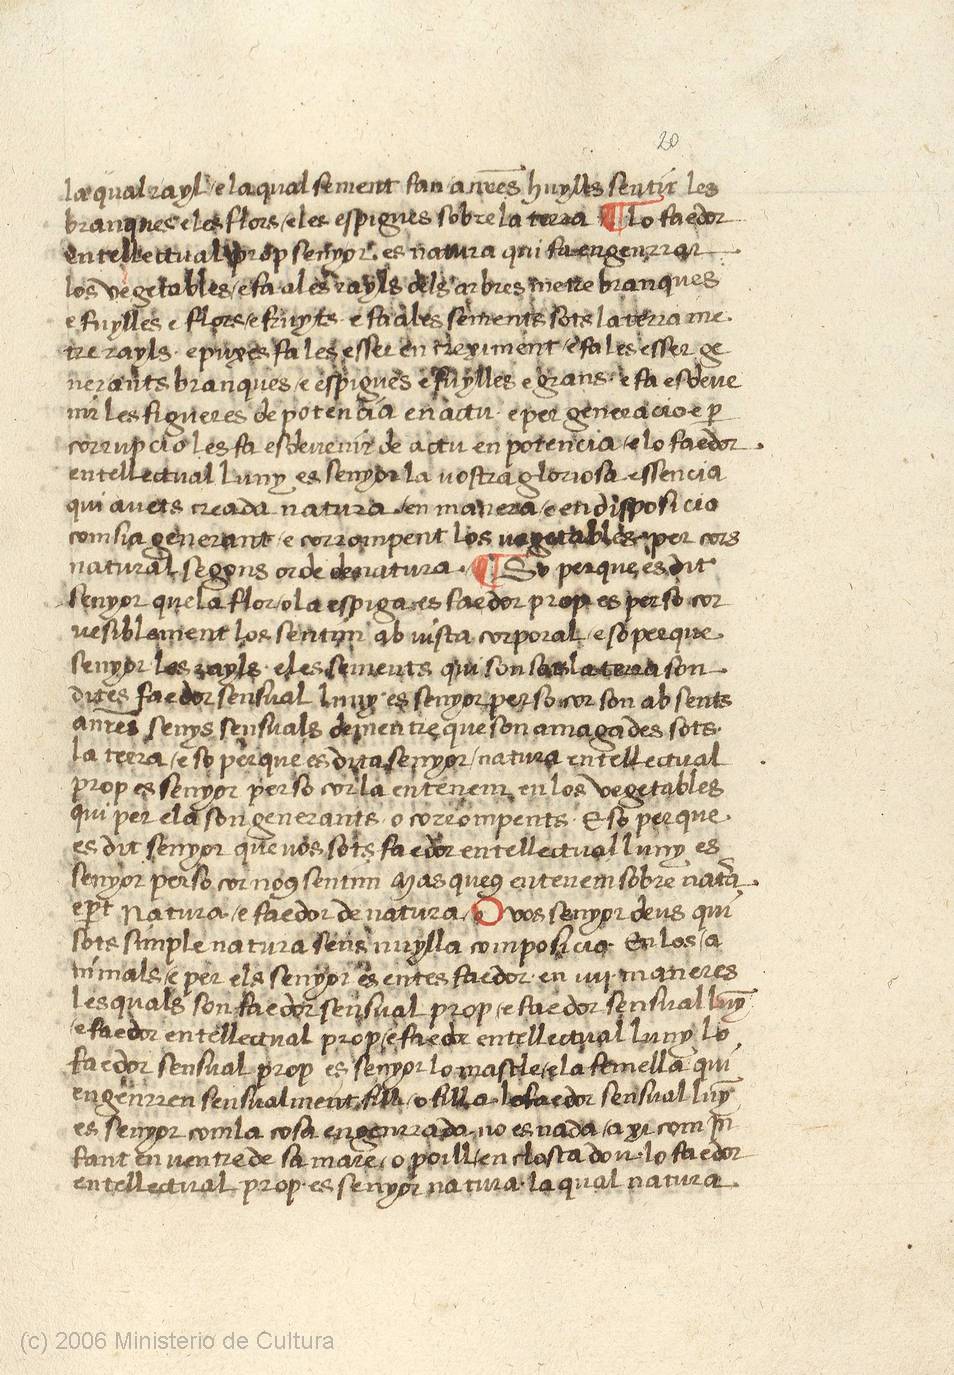 20
la qual rayl / e la qual sement fan a nr̄es huylls sentir les
branques e les flors / e les espigues sobre la terra ¶ lo faedor
entellectual prop senyor · es natura qui fa engenrrar
los vegetables / e fa a les rayls dels arbres metre branques
e fuylles e flors / e fruyts · e fa a les sements sots la terra me
tre rayls · e puxes fa les esser en creximent / e fa les esser ge
nerants branques / e espigues e fuylles e grans · e fa esdeve
nir les figueres de potencia en actu · e per generacio · e p̱
corrupcio les fa esdevenir de actu en potencia / e lo faedor
entellectual luny es senyor la vostra gloriosa essencia
qui avets creada natura / en manera / e en disposicio
com sia generant / e corrompent los vegetables · per cors
natural segons orde de natura · ¶ So perque es dit
senyor que la flor / o la espiga es faedor prop es per so cor
vesiblement los sentim ab vista corporal / e so perque
senyor les rayls · e les sements qui son sots la terra son
dites faedor sensual luny es senyor per so cor son absents
a nr̄es senys sensuals dementre que son amagades sots
la terra / e so perque es dita senyor / natura entellectual
prop es senyor per so cor la entenem en los vegetables
qui per ela son generants · o corrompents · E so perque
es dit senyor que vos sots faedor entellectual luny es
senyor per so cor noꝯ sentim mas queꝯ entenem sobre nat̄a
e p̱t natura · e faedor de natura · O vos senyor deus qui
sots simple natura sens nuylla composicio · En los / a
nimals / e per els senyor es entes faedor · en iiij · maneres
les quals son faedor sensual prop / e faedor sensual luny
/ e faedor entellectual prop / e faedor entellectual luny lo
faedor sensual prop es senyor lo mascle / e la femella qui
engenrren sensualment fill / o filla · lo faedor sensual luny
es senyor com la cosa engenrrada no es nada / axi com īn
fant en ventre de sa mare / o poill / en closca dou · lo faedor
entellectual prop · es senyor natura · la qual natura
(c) 2006 Ministerio de Cultura